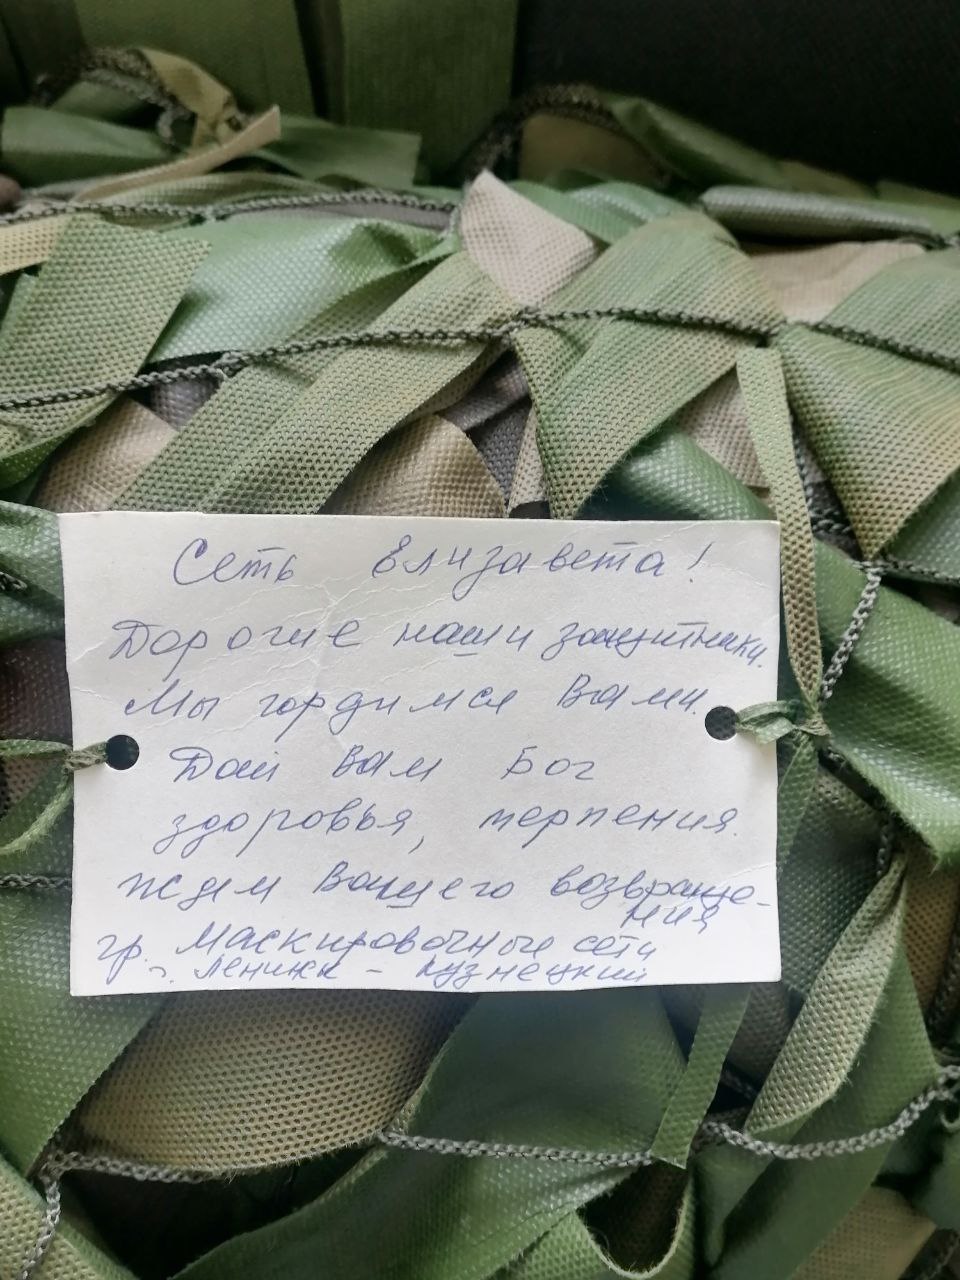 Сеть Елизавета!
Дорогие наши защитники.
Мы гордимся Вами.
Дай Вам Бог
здоровья, терпения.
Ждем Вашего возвраще-
ния
гр. Маскировочные сети
г. Ленинск-Кузнецкий